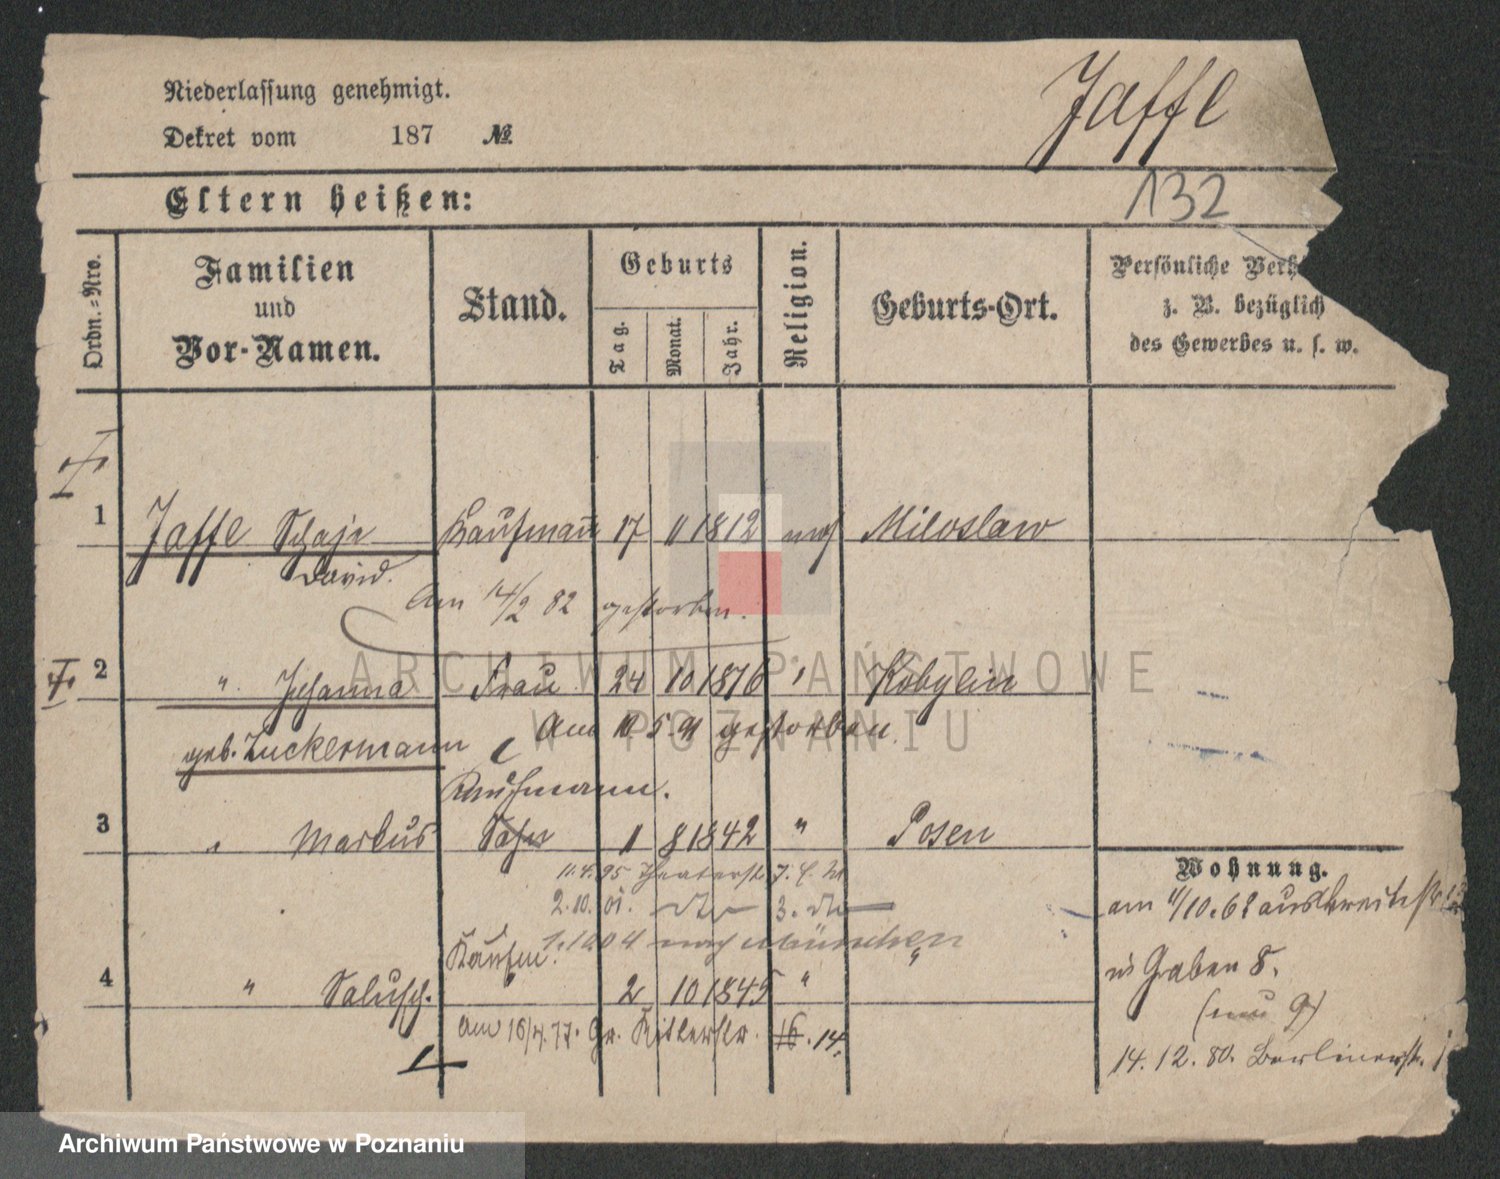 Niederlassung genehmigt.
Jaffe
Dekret vom 187 №.
Eltern heißen:
132
Ordn.-Nro.
Familien
und
Vor-Namen.
Stand.
Geburts
Tag.
Monat.
Jahr.
Religion.
Geburts-Ort.
Persönliche Verh
z. B. bezüglich
des Gewerbes u. s. w.
1 Jaffe Schaje Kaufmann 17 11 1812 mos Miloslaw
David.
Am 14/2 82 gestorben.
2 " Johanna Frau 24 10 1816 " Kobylin
geb. Zuckermann
Am 10. 5. 91 gestorben.
Kaufmann.
3 " Markus Sohn 1 8 1842 " Posen
11. 4. 95 Theaterst 7.
2. 10. 01. dto 3. dto
1. 10 04 nach München
Kaufm.
4 " Salusch. " 2 10 1845 " "
am 16/4. 77. Gr. Ritterstr. 16. 14.
Wohnung.
am 11/10. 62 aus Breitestr
n Graben 8.
(neu 9)
14. 12. 80. Berlinerstr.
ARCHIWUM PAŃSTWOWE
W POZNANIU
Archiwum Państwowe w Poznaniu